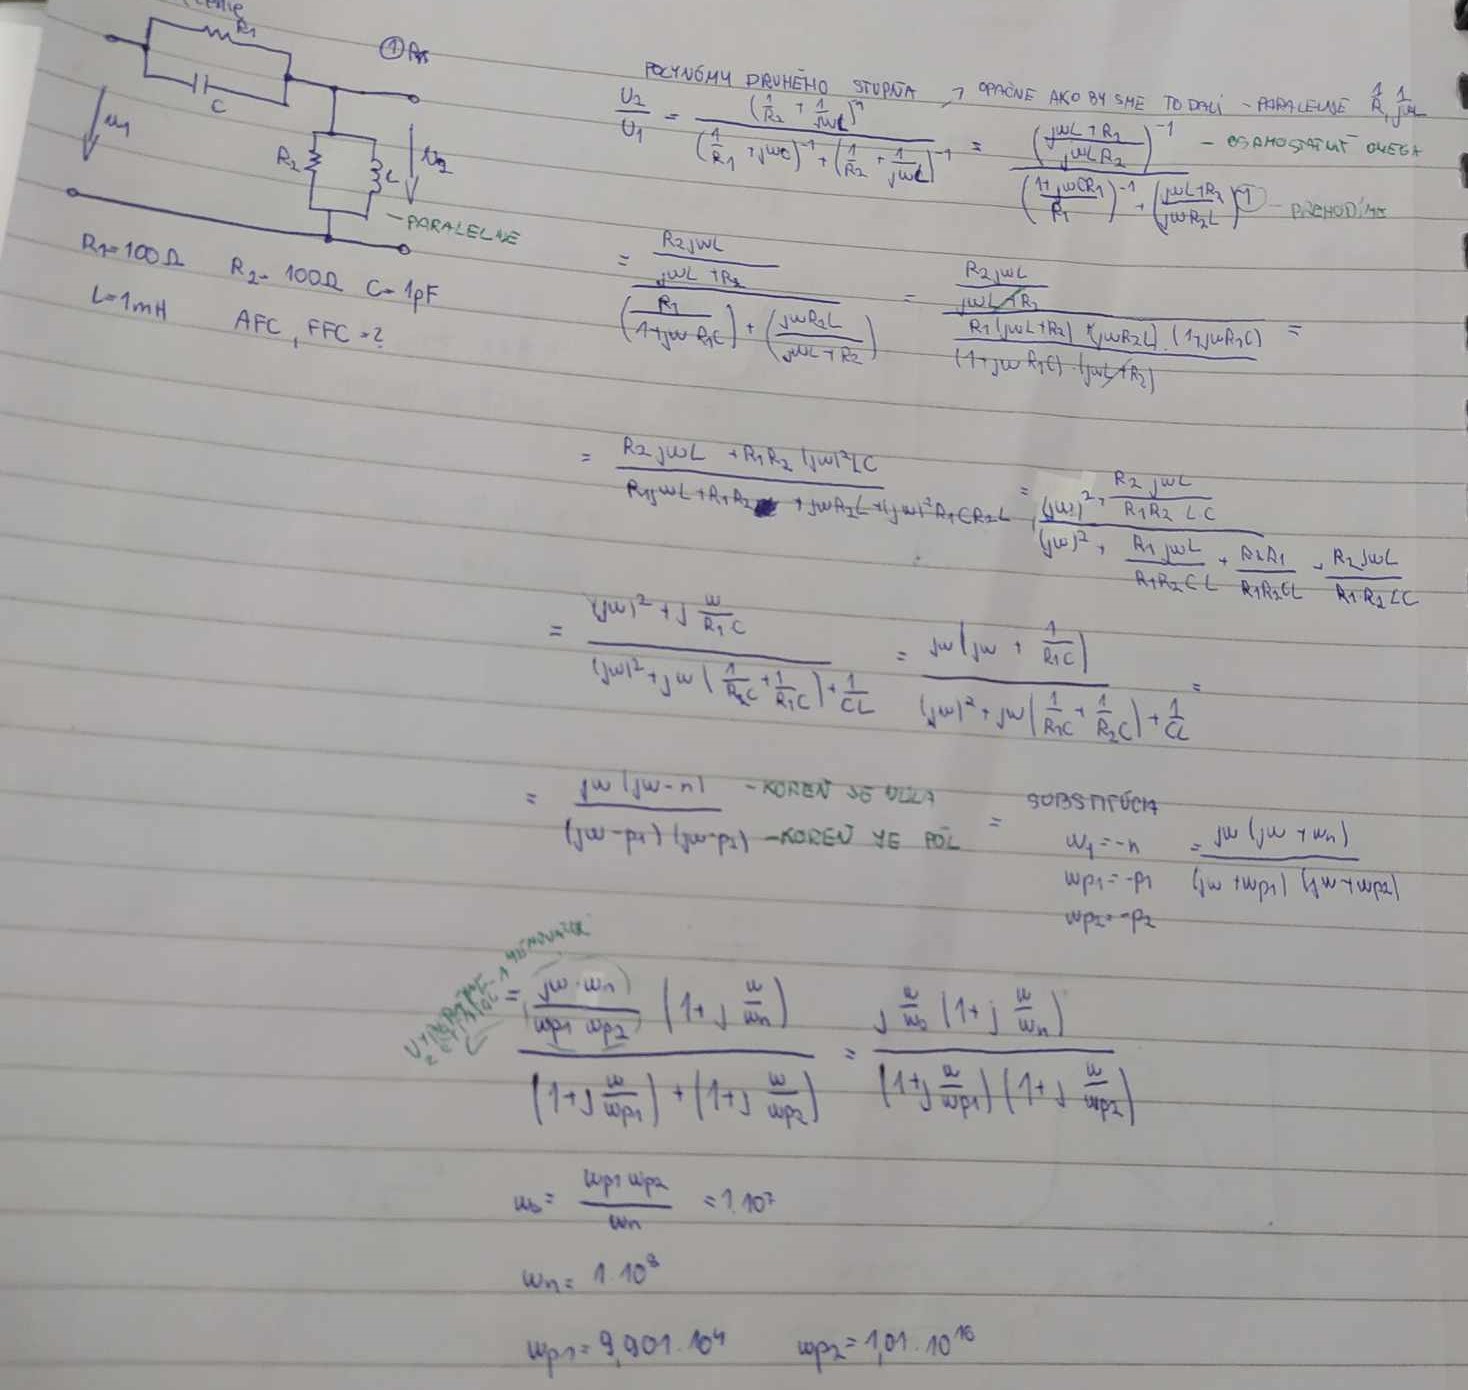 R1
C
U1
R2
L
U2
- PARALELNE
R1=100Ω R2= 100Ω C=1pF
L=1mH AFC, FFC = ?
POLYNÓMY DRUHÉHO STUPŇA → OPAČNE AKO BY SME TO DALI - PARALELNE 1/R, 1/jωL
U2/U1 = (1/R2 + 1/jωL)^-1 / ((1/R1 + jωC)^-1 + (1/R2 + 1/jωL)^-1) = ((jωL+R2)/(jωLR2))^-1 / (((1+jωCR1)/R1)^-1 + ((jωL+R2)/(jωR2L))^-1)
- OSAMOSTATNIŤ OMEGA
- PREHODÍME
= (R2jωL/(jωL+R2)) / ((R1/(1+jωR1C)) + (jωR2L/(jωL+R2))) = (R2jωL/(jωL+R2)) / ((R1(jωL+R2)+(jωR2L).(1+jωR1C))/((1+jωR1C).(jωL+R2))) =
= (R2jωL + R1R2(jω)²LC) / (R1jωL+R1R2 + jωR2L+(jω)²R1CR2L) = ((jω)² + R2jωL/(R1R2LC)) / ((jω)² + R1jωL/(R1R2CL) + R2R1/(R1R2CL) + R2jωL/(R1.R2LC))
= ((jω)² + j ω/(R1C)) / ((jω)²+jω(1/(R2C)+1/(R1C))+1/(CL)) = jω(jω + 1/(R1C)) / ((jω)²+jω(1/(R1C)+1/(R2C))+1/(CL)) =
= jω(jω-n) / ((jω-p1)(jω-p2)) = SUBSTITÚCIA
- KOREŇ JE NULA
- KOREŇ JE PÓL
ω1=-n
ωp1=-p1
ωp2=-p2
= jω(jω+ωn) / ((jω+ωp1)(jω+ωp2))
= (jω.ωn)/(ωp1 ωp2) (1+j ω/ωn) / ((1+j ω/ωp1)+(1+j ω/ωp2)) = j ω/ω0 (1+j ω/ωn) / ((1+j ω/ωp1)(1+j ω/ωp2))
ω0 = ωp1 ωp2/ωn = 1.10⁷
ωn = 1.10⁸
ωp1=9,901.10⁴ ωp2=1,01.10¹⁰